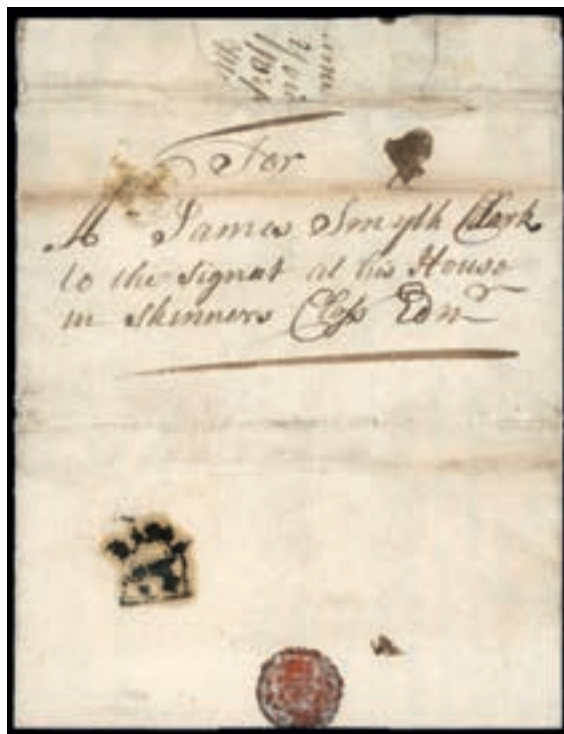 For
Mr James Smyth Clark
to the Signet at his House
in Skinners Closs Ednr